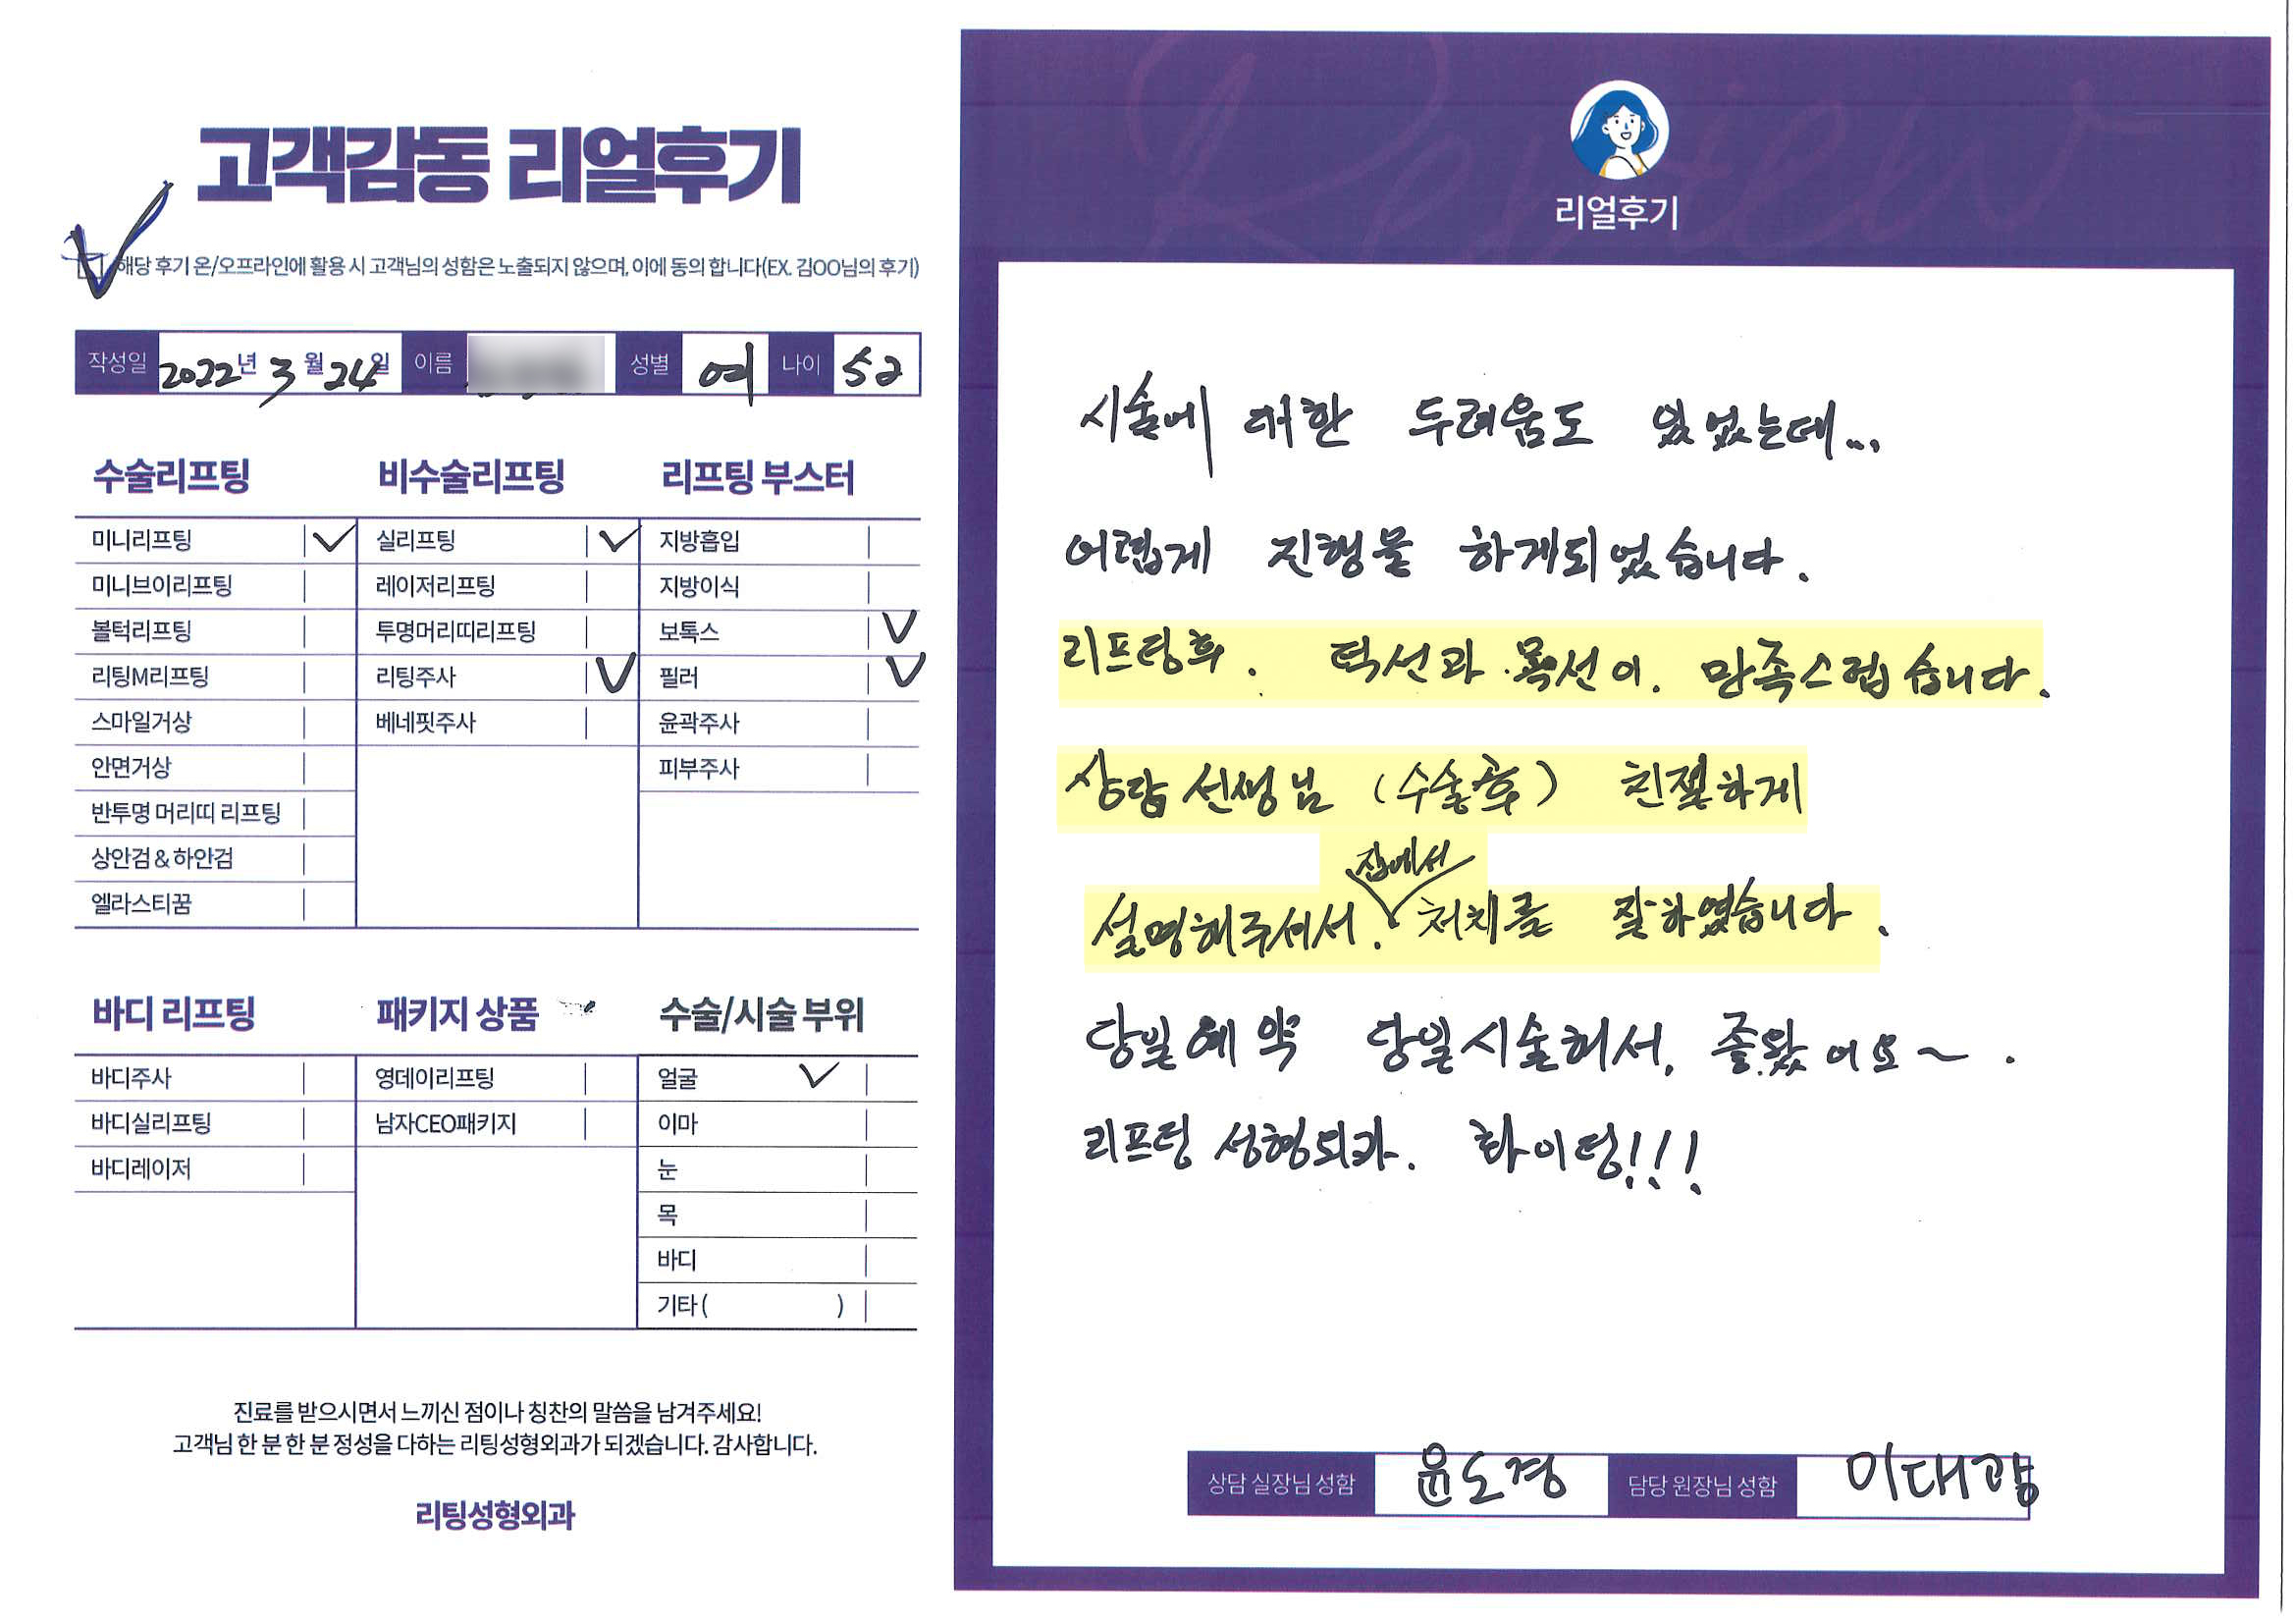 고객감동 리얼후기
해당 후기 온/오프라인에 활용 시 고객님의 성함은 노출되지 않으며, 이에 동의 합니다(EX. 김OO님의 후기)
작성일 2022년 3월 24일 이름 성별 여 나이 52
수술리프팅
미니리프팅 ✓
미니브이리프팅
볼턱리프팅
리팅M리프팅
스마일거상
안면거상
반투명 머리띠 리프팅
상안검 & 하안검
엘라스티꿈
비수술리프팅
실리프팅 ✓
레이저리프팅
투명머리띠리프팅
리팅주사 ✓
베네핏주사
리프팅 부스터
지방흡입
지방이식
보톡스 ✓
필러 ✓
윤곽주사
피부주사
바디 리프팅
바디주사
바디실리프팅
바디레이저
패키지 상품
영데이리프팅
남자CEO패키지
수술/시술 부위
얼굴 ✓
이마
눈
목
바디
기타 ( )
진료를 받으시면서 느끼신 점이나 칭찬의 말씀을 남겨주세요!
고객님 한 분 한 분 정성을 다하는 리팅성형외과가 되겠습니다. 감사합니다.
리팅성형외과
Review
리얼후기
시술에 대한 두려움도 있었는데...
어렵게 진행을 하게되었습니다.
리프팅후. 턱선과 목선이. 만족스럽습니다.
상담 선생님 (수술후) 친절하게
집에서
설명해주셔서. 처치를 잘하였습니다.
당일예약 당일시술해서. 좋왔어요~.
리프팅 성형외과. 화이팅!!!
상담 실장님 성함 윤도경 담당 원장님 성함 이대광